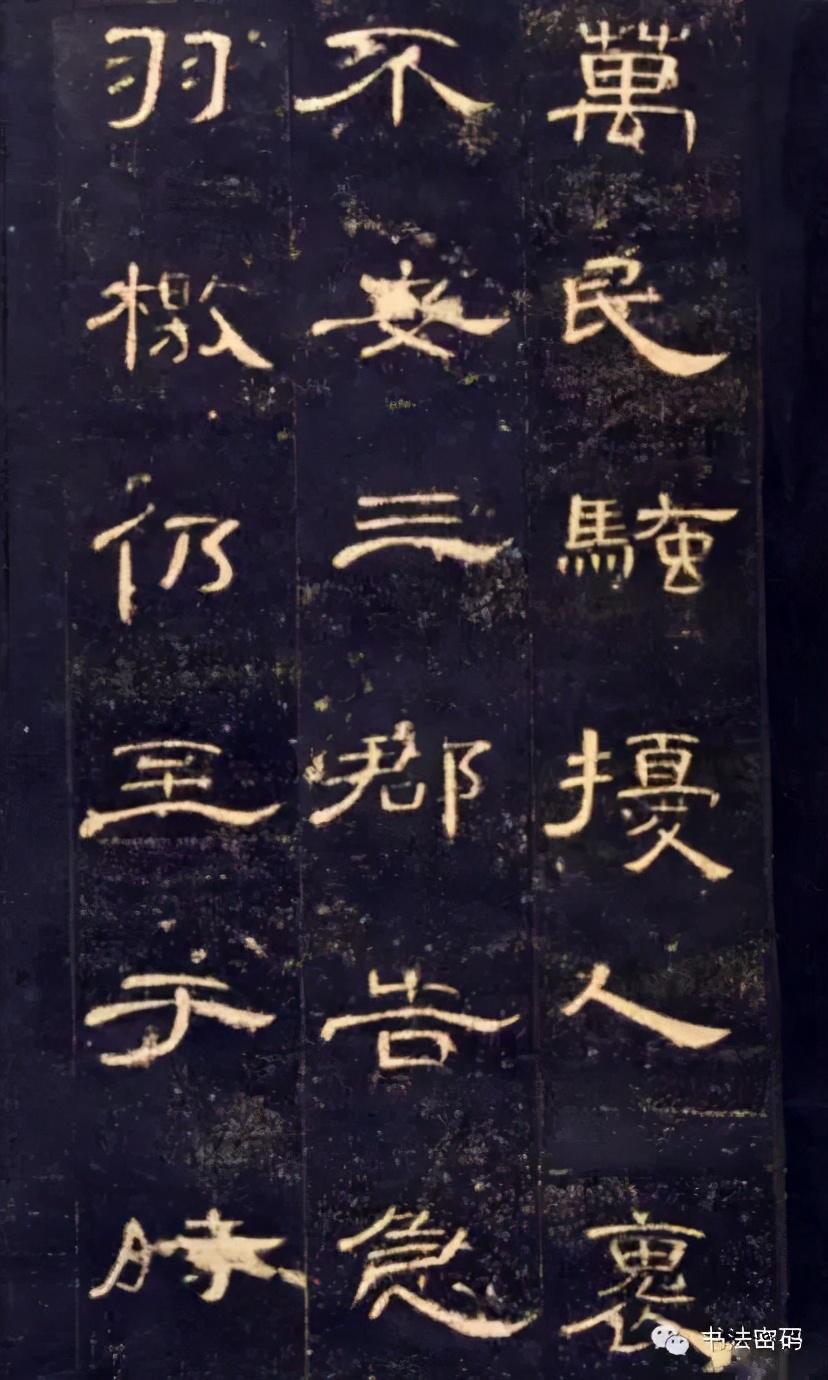 萬民騷擾人褱
不安三郡告急
羽檄仍至于時
书法密码